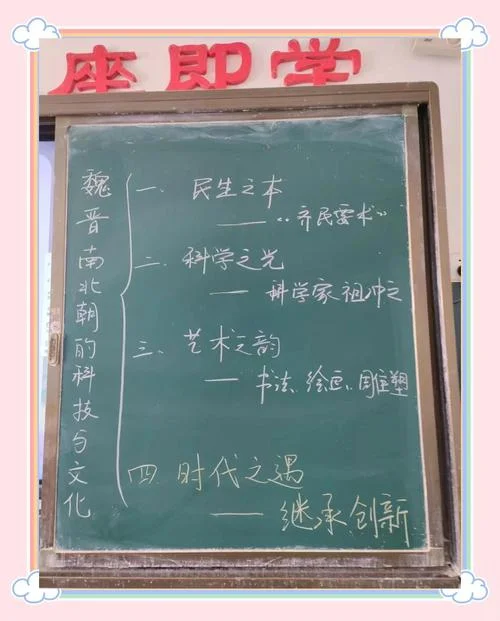 座即学
魏晋南北朝的科技与文化
一、民生之本
——“齐民要术”
二、科学之光
——科学家祖冲之
三、艺术之韵
——书法、绘画、雕塑
四、时代之遇
——继承创新